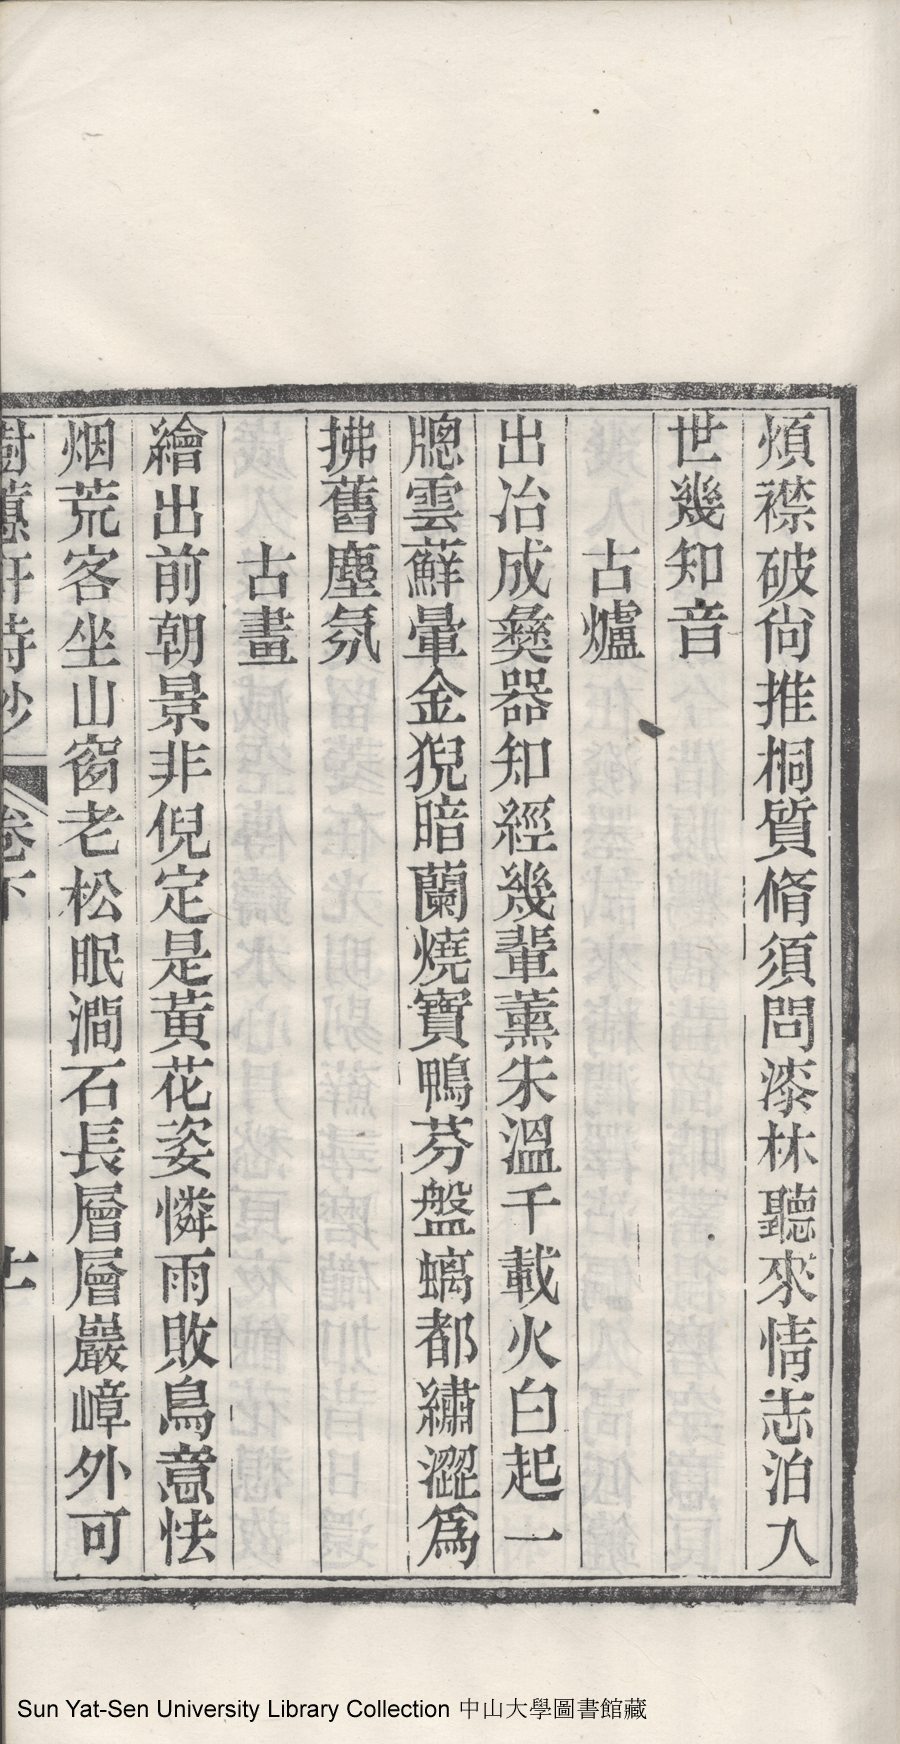 煩襟破尙推桐質脩須問漆林聽來情志泊入
世幾知音
古爐
出冶成彝器知經幾輩薰朱溫千載火白起一
牕雲蘚暈金猊暗蘭燒寶鴨芬盤螭都繡澀爲
拂舊塵氛
古畫
繪出前朝景非倪定是黃花姿憐雨敗鳥意怯
烟荒客坐山窗老松眠澗石長層層巖嶂外可
樹蕙軒詩鈔
卷下
十一
Sun Yat-Sen University Library Collection 中山大學圖書館藏